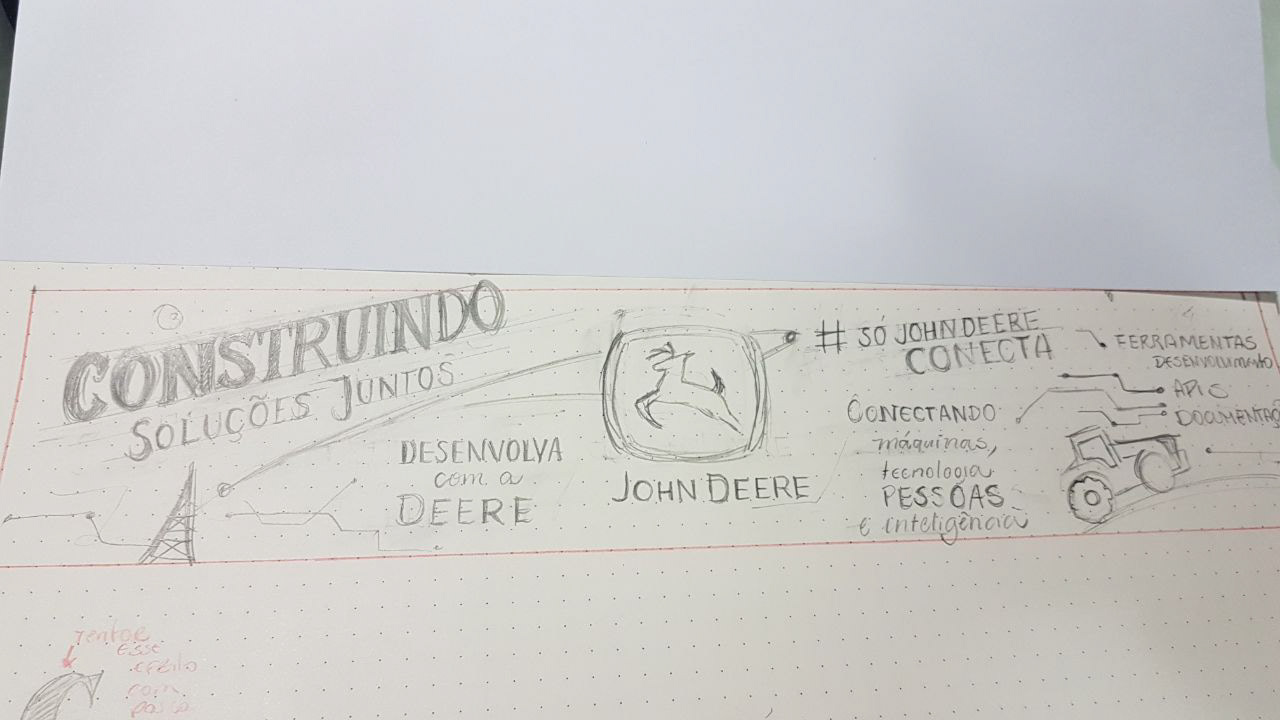 CONSTRUINDO
SOLUÇÕES JUNTOS
DESENVOLVA
com a
DEERE
JOHN DEERE
# SÓ JOHN DEERE
CONECTA
CONECTANDO
máquinas,
tecnologia
PESSOAS
e inteligência
FERRAMENTAS
DESENVOLVIMENTO
APIS
DOCUMENTAÇ
esse
com